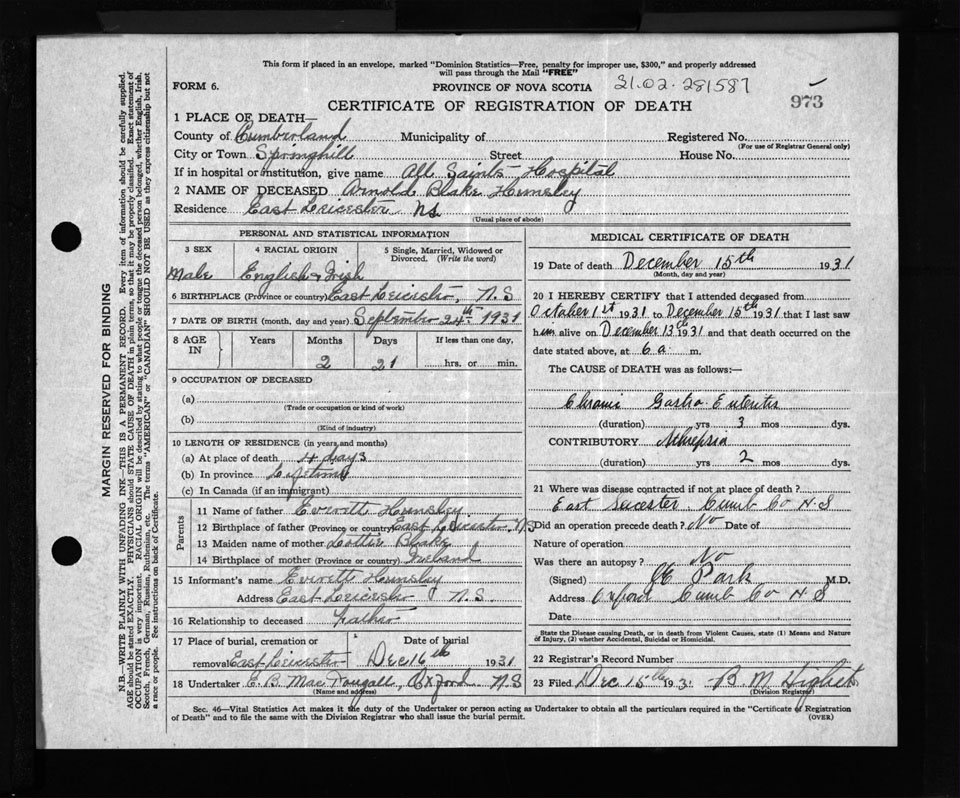 This form if placed in an envelope, marked "Dominion Statistics—Free, penalty for improper use, $300," and properly addressed
will pass through the Mail "FREE"
FORM 6. PROVINCE OF NOVA SCOTIA 31.02.281587 973
CERTIFICATE OF REGISTRATION OF DEATH
1 PLACE OF DEATH—
County of Cumberland Municipality of Registered No.
(For use of Registrar General only)
City or Town Springhill Street House No.
If in hospital or institution, give name All Saints Hospital
2 NAME OF DECEASED Arnold Blake Hemsley
Residence East Leicester N.S.
(Usual place of abode)
PERSONAL AND STATISTICAL INFORMATION
3 SEX 4 RACIAL ORIGIN 5 Single, Married, Widowed or
Divorced. (Write the word)
Male English & Irish
6 BIRTHPLACE (Province or country) East Leicester, N.S
7 DATE OF BIRTH (month, day and year) September 24th 1931
8 AGE IN Years Months Days If less than one day,
2 21 hrs. or min.
9 OCCUPATION OF DECEASED
(a)
(Trade or occupation or kind of work)
(b)
(Kind of industry)
10 LENGTH OF RESIDENCE (in years and months)
(a) At place of death 4 days
(b) In province Lifetime
(c) In Canada (if an immigrant)
Parents
11 Name of father Everett Hemsley
12 Birthplace of father (Province or country) East Leicester N.S
13 Maiden name of mother Lottie Blake
14 Birthplace of mother (Province or country) Ireland
15 Informant's name Everett Hemsley
Address East Leicester N.S.
16 Relationship to deceased Father
17 Place of burial, cremation or Date of burial
removal East Leicester Dec 16th 1931
18 Undertaker E. B. MacDougall, Oxford N.S
(Name and address)
MEDICAL CERTIFICATE OF DEATH
19 Date of death December 15th 1931
(Month, day and year)
20 I HEREBY CERTIFY that I attended deceased from
October 1st 1931 to December 15th 1931 that I last saw
him alive on December 13th 1931 and that death occurred on the
date stated above, at 6 a. m.
The CAUSE of DEATH was as follows:—
Chronic Gastro Enteritis
(duration) yrs 3 mos dys.
CONTRIBUTORY Athrepsia
(duration) yrs 2 mos. dys.
21 Where was disease contracted if not at place of death?
East Leicester Cumb Co N.S
Did an operation precede death? No Date of
Nature of operation
Was there an autopsy? No
(Signed) Park M.D.
Address Oxford Cumb Co N.S
Date
State the Disease causing Death, or in death from Violent Causes, state (1) Means and Nature
of Injury, (2) whether Accidental, Suicidal or Homicidal.
22 Registrar's Record Number
23 Filed Dec 15th 1931 B. M.
(Division Registrar)
Sec. 46—Vital Statistics Act makes it the duty of the Undertaker or person acting as Undertaker to obtain all the particulars required in the "Certificate of Registration
of Death" and to file the same with the Division Registrar who shall issue the burial permit. (OVER)
MARGIN RESERVED FOR BINDING
N.B.—WRITE PLAINLY WITH UNFADING INK—THIS IS A PERMANENT RECORD. Every item of information should be carefully supplied.
AGE should be stated EXACTLY. PHYSICIANS should STATE CAUSE OF DEATH in plain terms, so that it may be properly classified. Exact statement of
OCCUPATION is very important. RACIAL ORIGIN will be described by stating to what people or tongue the deceased person belonged, whether English, Irish,
Scotch, French, German, Russian, Ruthenian, etc. The terms "AMERICAN" or "CANADIAN" SHOULD NOT BE USED as they express citizenship but not
a race or people. See instructions on back of Certificate.